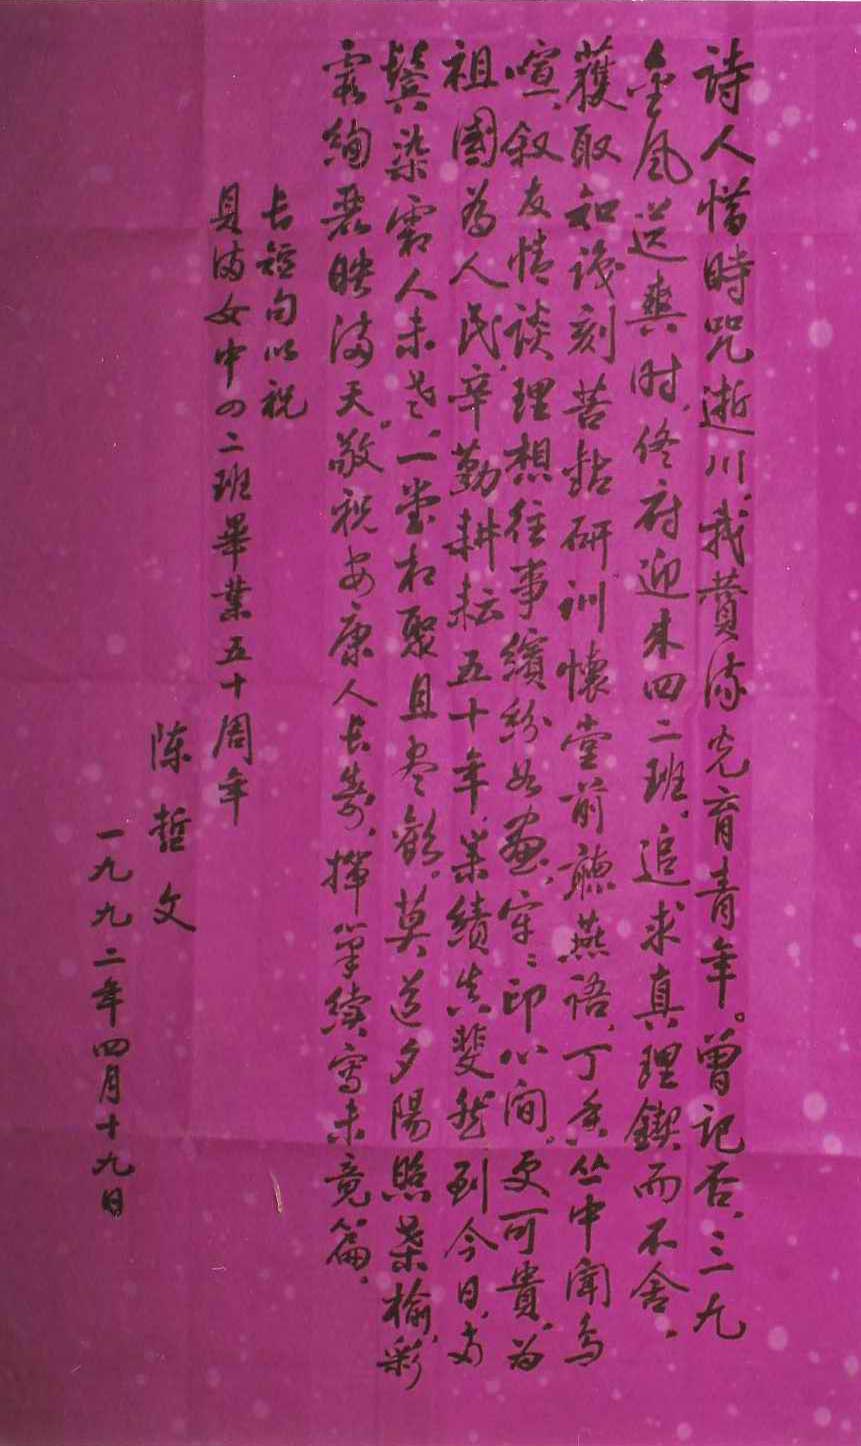 詩人惜時咒逝川。我贊園丁育青年。曾記否，三九
金风送爽时，佟府迎来四二班。追求真理鍥而不舍，
獲取知識刻苦钻研。训懷堂前聽燕语，丁香丛中闻鸟
喧。叙友情谈理想往事缤纷如畫，牢々印心间。更可貴，为
祖國為人民，辛勤耕耘五十年，業績真斐然。到今日，两
鬓染霜人未老，一堂相聚且尽歡。莫道夕陽照桑榆，彩
霞絢麗映满天。敬祝安康人长寿，揮筆續寫未竟篇。
长短句以祝
貝满女中四二班畢業五十周年
陈哲文
一九九二年四月十九日